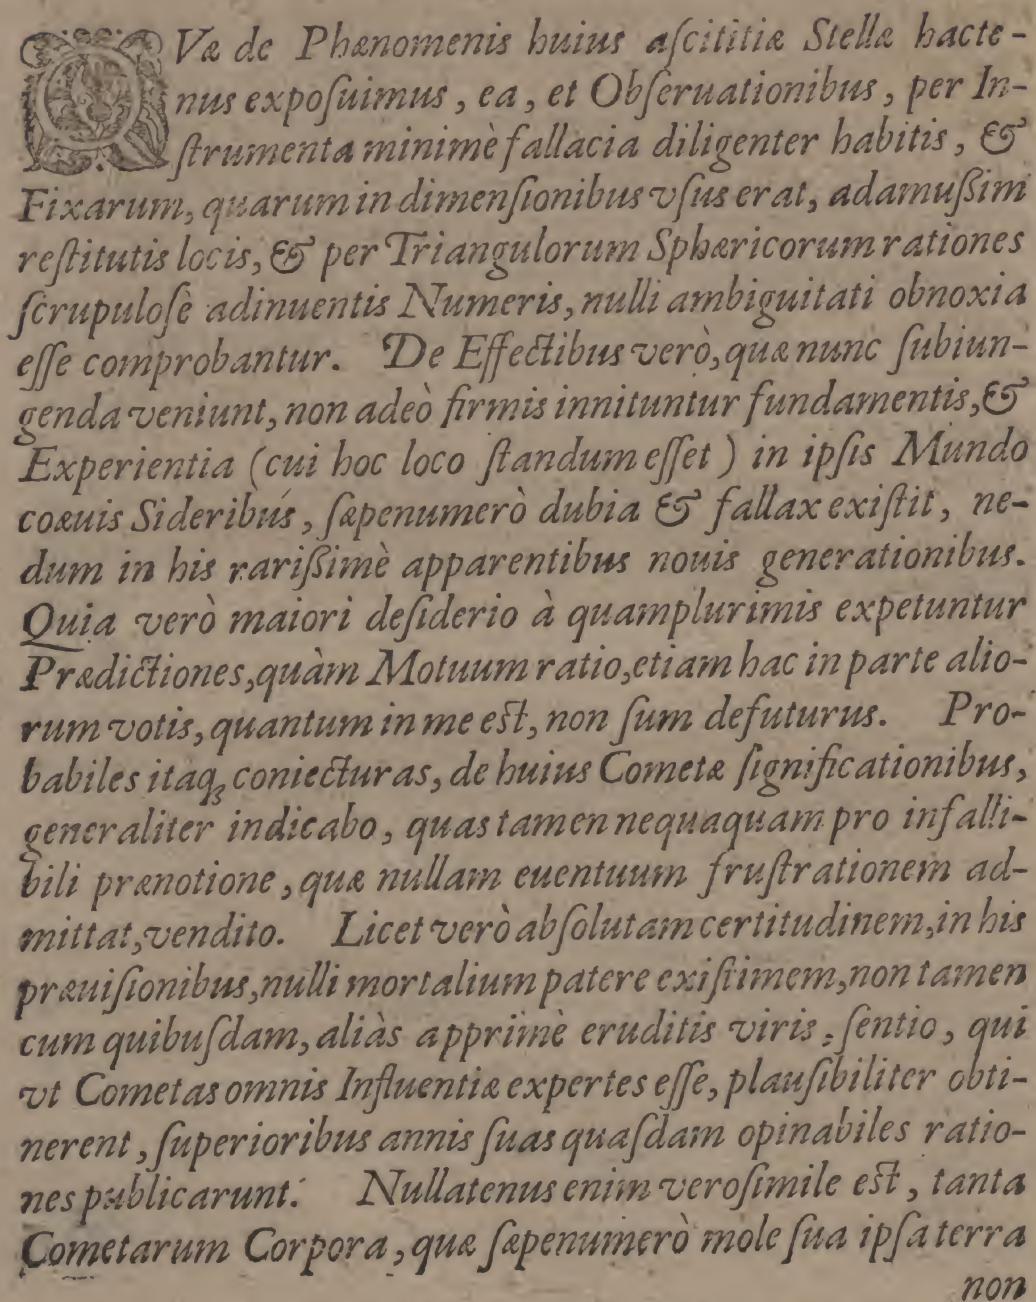 QVæ de Phænomenis huius aſcititiæ Stellæ hacte-
nus expoſuimus, ea, et Obſeruationibus, per In-
ſtrumenta minimè fallacia diligenter habitis, &
Fixarum, quarum in dimenſionibus vſus erat, adamußim
reſtitutis locis, & per Triangulorum Sphæricorum rationes
ſcrupuloſè adinuentis Numeris, nulli ambiguitati obnoxia
eſſe comprobantur. De Effectibus verò, quæ nunc ſubiun-
genda veniunt, non adeò firmis innituntur fundamentis, &
Experientia (cui hoc loco ſtandum eſſet) in ipſis Mundo
coæuis Sideribus, ſæpenumerò dubia & fallax exiſtit, ne-
dum in his rarißimè apparentibus nouis generationibus.
Quia verò maiori deſiderio à quamplurimis expetuntur
Prædictiones, quàm Motuum ratio, etiam hac in parte alio-
rum votis, quantum in me eſt, non ſum defuturus. Pro-
babiles itaq; coniecturas, de huius Cometæ ſignificationibus,
generaliter indicabo, quas tamen nequaquam pro infalli-
bili prænotione, quæ nullam euentuum fruſtrationem ad-
mittat, vendito. Licet verò abſolutam certitudinem, in his
præuiſionibus, nulli mortalium patere exiſtimem, non tamen
cum quibuſdam, aliàs apprimè eruditis viris, ſentio, qui
vt Cometas omnis Influentiæ expertes eſſe, plauſibiliter obti-
nerent, ſuperioribus annis ſuas quaſdam opinabiles ratio-
nes publicarunt. Nullatenus enim veroſimile eſt, tanta
Cometarum Corpora, quæ ſæpenumerò mole ſua ipſa terra
non